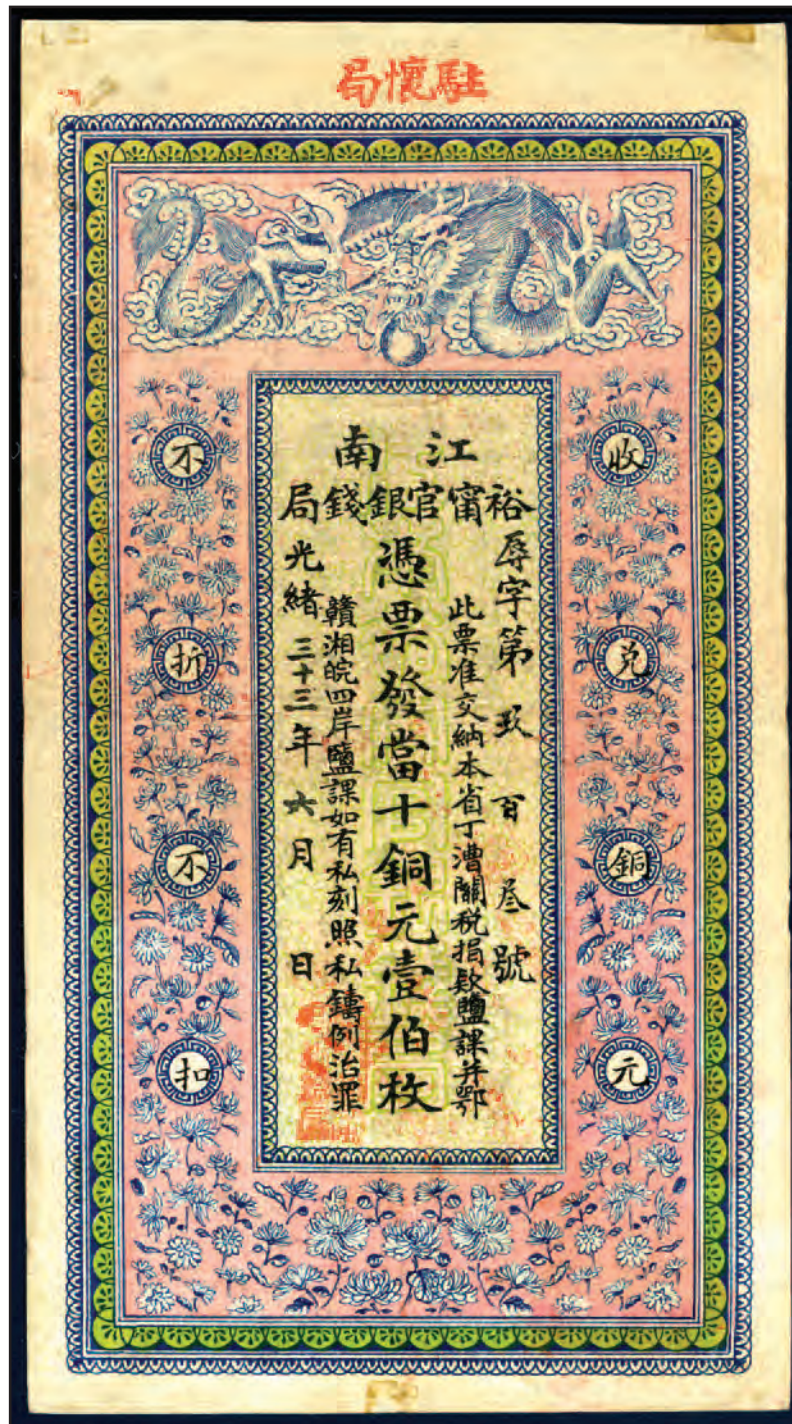 駐懷局
江南
裕甯官銀錢局
辱字第玖百叁號
此票准交納本省丁漕關稅捐欵鹽課并鄂
憑票發當十銅元壹伯枚
贛湘皖四岸鹽課如有私刻照私鑄例治罪
光緒三十三年六月日
收兑銅元
不折不扣